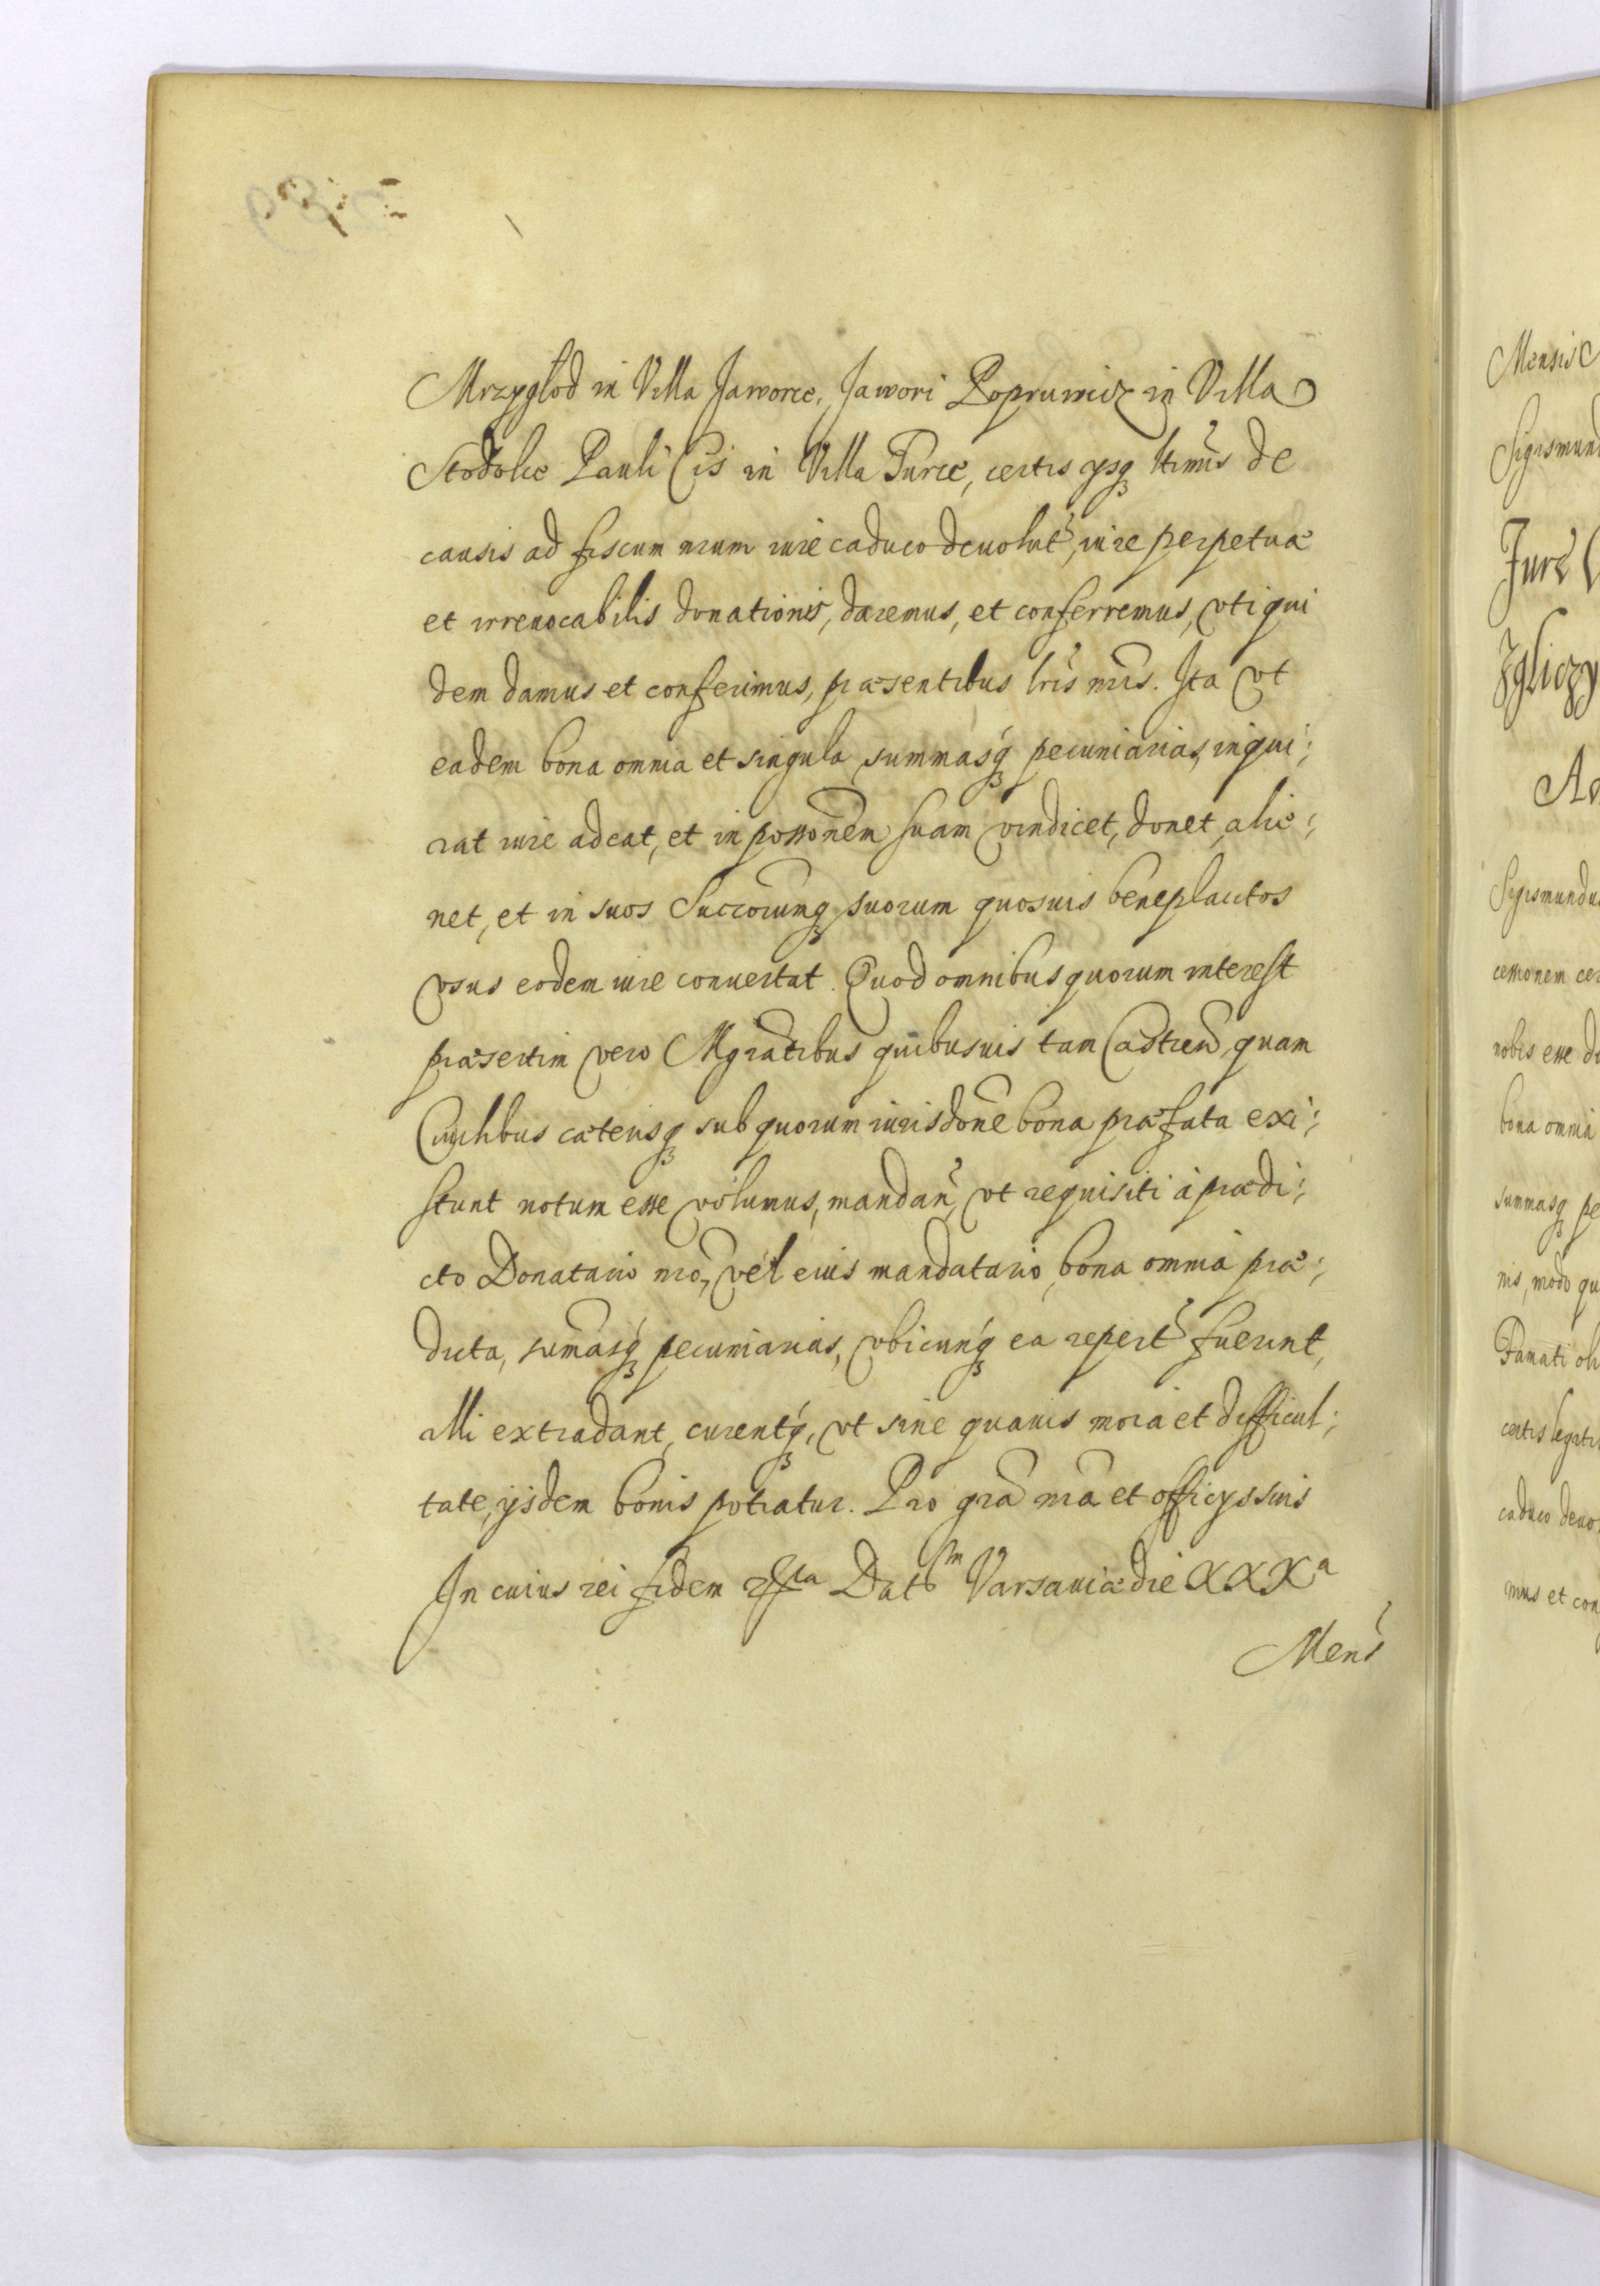 Mrzyglod in Villa Jaworce, Jawori Popruwicz in Villa
Stodolce Pauli Cis in Villa Turce, certis ysq ltimis de
causis ad fiscum nrum iure caduco deuolut, iure perpetuæ
et irreuocabilis donationis, daremus, et conferremus, vti qui
dem damus et conferimus, præsentibus lris nris. Ita vt
eadem bona omnia et singula summasq pecuniarias, inqui:
rat iure adeat, et in possonem suam vindicet, donet, alie:
net, et in suos Succorumq suorum quosuis beneplacitos
vsus eodem iure conuertat. Quod omnibus quorum interest
præsertim vero Mgratibus quibusuis tam Castren, quam
Ciuilibus cæterisq sub quorum iurisdone bona præfata exi:
stunt notum esse volumus, mandan, vt requisiti à prædi:
cto Donatario nro, vel eius mandatario, bona omnia præ:
dicta, sumasq pecuniarias, vbicunq ea repert fuerint,
illi extradant, curentq, vt sine quauis mora et difficul:
tate, ysdem bonis potiatur. Pro gra nra et officys suis
In cuius rei fidem Dat Varsauiæ die XXXa
Mens
Mensis
Sigismund
Jure
Igliczy
Sigismundu
cessonem cer
nobis esse
bona omnia
summasq pe
nis, modo qu
Famati oli
certis legiti
caduco deuo
mus et con